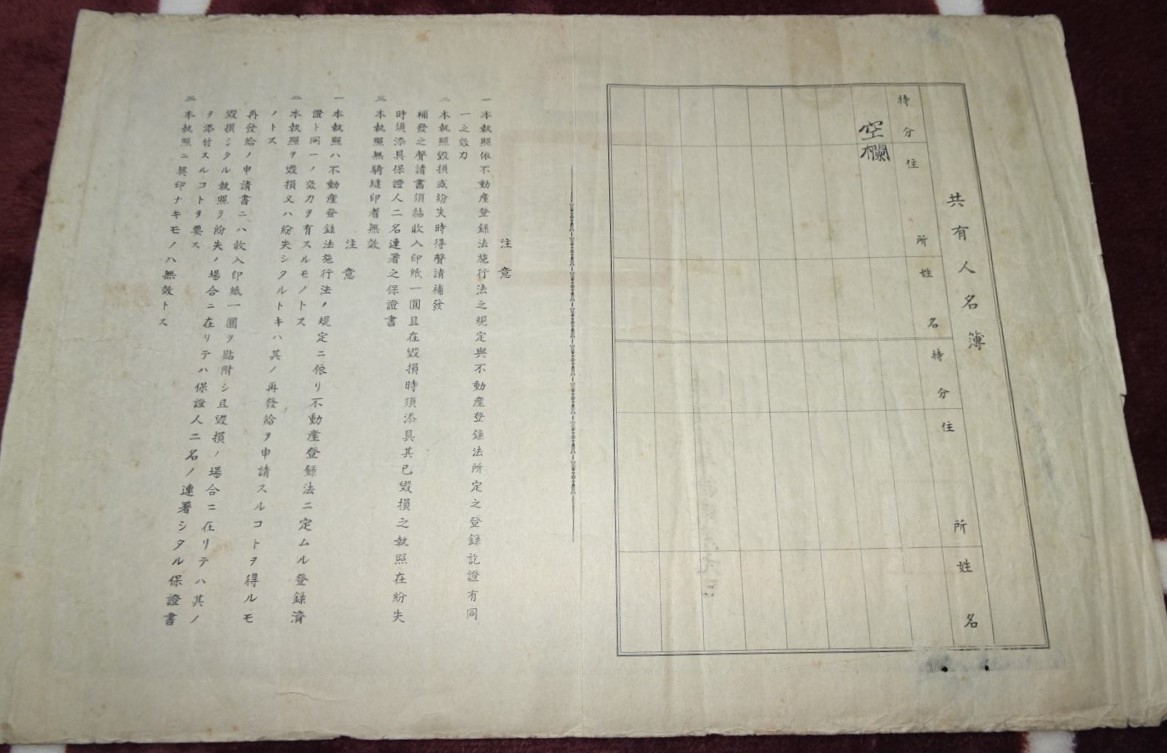 共有人名簿
持分 住所 姓名 持分 住所 姓名
空欄
注意
一 本執照依不動產登錄法施行法之規定與不動產登錄法所定之登錄訖證有同
一之效力
二 本執照毀損或紛失時得聲請補發
補發之聲請書須黏收入印紙一圓且在毀損時須添具其已毀損之執照在紛失
時須添具保證人二名連署之保證書
三 本執照無騎縫印者無效
注意
一 本執照ハ不動產登錄法施行法ノ規定ニ依リ不動產登錄法ニ定ムル登錄濟
證ト同一ノ效力ヲ有スルモノトス
二 本執照ヲ毀損又ハ紛失シタルトキハ其ノ再發給ヲ申請スルコトヲ得ルモ
ノトス
再發給ノ申請書ニハ收入印紙一圓ヲ貼附シ且毀損ノ場合ニ在リテハ其ノ
毀損シタル執照ヲ紛失ノ場合ニ在リテハ保證人二名ノ連署シタル保證書
ヲ添付スルコトヲ要ス
三 本執照ニ契印ナキモノハ無效トス